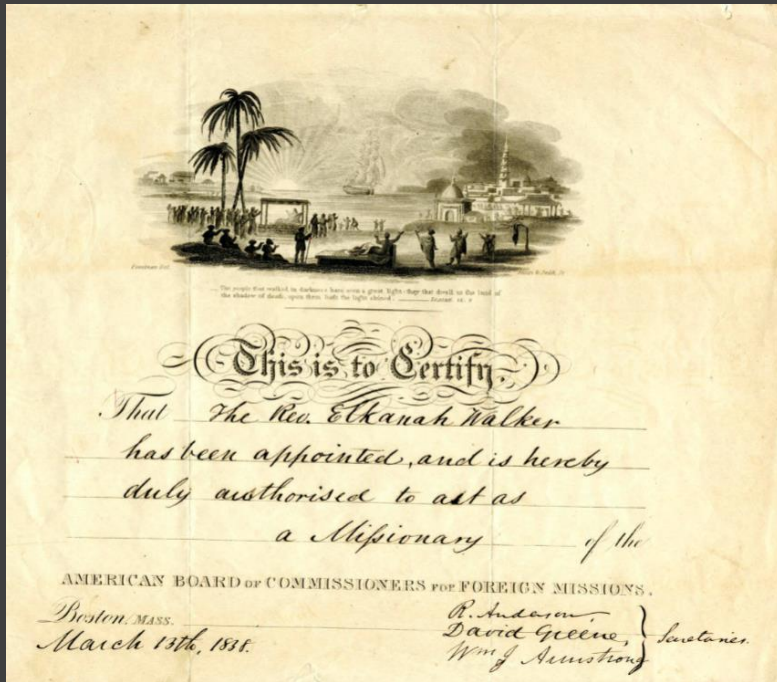 The people that walked in darkness have seen a great light: they that dwell in the land of
the shadow of death, upon them hath the light shined. Isaiah ix. 2
This is to Certify.
That The Rev. Elkanah Walker
has been appointed, and is hereby
duly authorised to act as
a Missionary of the
AMERICAN BOARD OF COMMISSIONERS FOR FOREIGN MISSIONS.
Boston, MASS.
March 13th, 1838.
R. Anderson,
David Greene,
Wm J Armstrong
Secretaries.